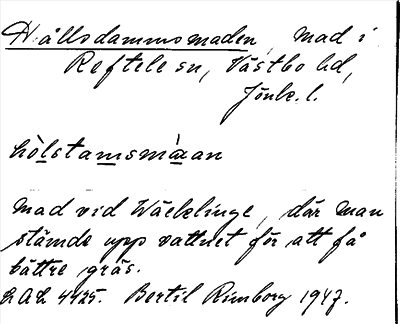 Hållsdammsmaden, mad i
Reftele sn, Västbo hd,
Jönk. l.
hòlstamsmàan
Mad vid Wäcklinge, där man
stämde upp vattnet för att få
bättre gräs.
LAL 4425. Bertil Rimborg 1947.